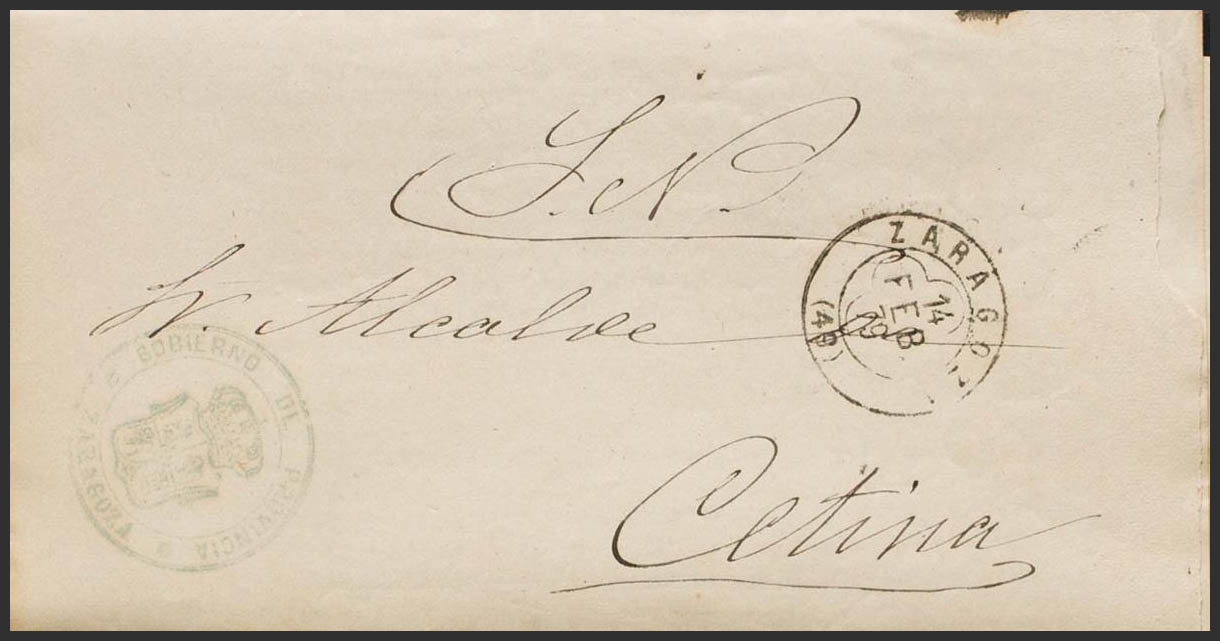 S. N.
Sr. Alcalde
Cetina
ZARAGOZA
14
FEB
79
(48)
GOBIERNO DE PROVINCIA
ZARAGOZA